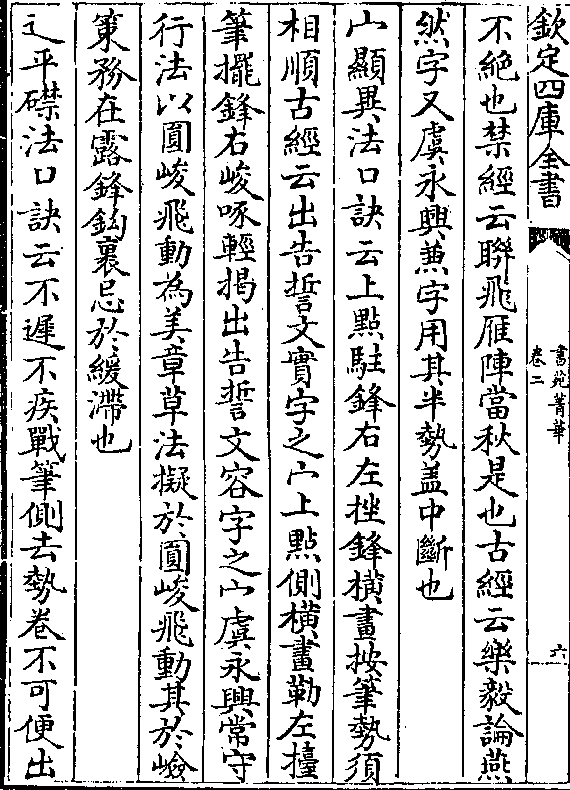 欽定四庫全書
書苑菁華
卷二
六
不絕也禁經云聯飛雁陣當秋是也古經云樂毅論燕
然字又虞永興燕字用其半勢盖中斷也
宀顯異法口訣云上點駐鋒右左挫鋒橫畫按筆勢須
相順古經云出告誓文實字之宀上點側橫畫勒左擡
筆擺鋒右峻啄輕揭出告誓文容字之宀虞永興常守
行法以圓峻飛動為美章草法擬於圓峻飛動其於嶮
策務在露鋒鈎裹忌於緩滯也
辶平磔法口訣云不遲不疾戰筆側去勢卷不可便出